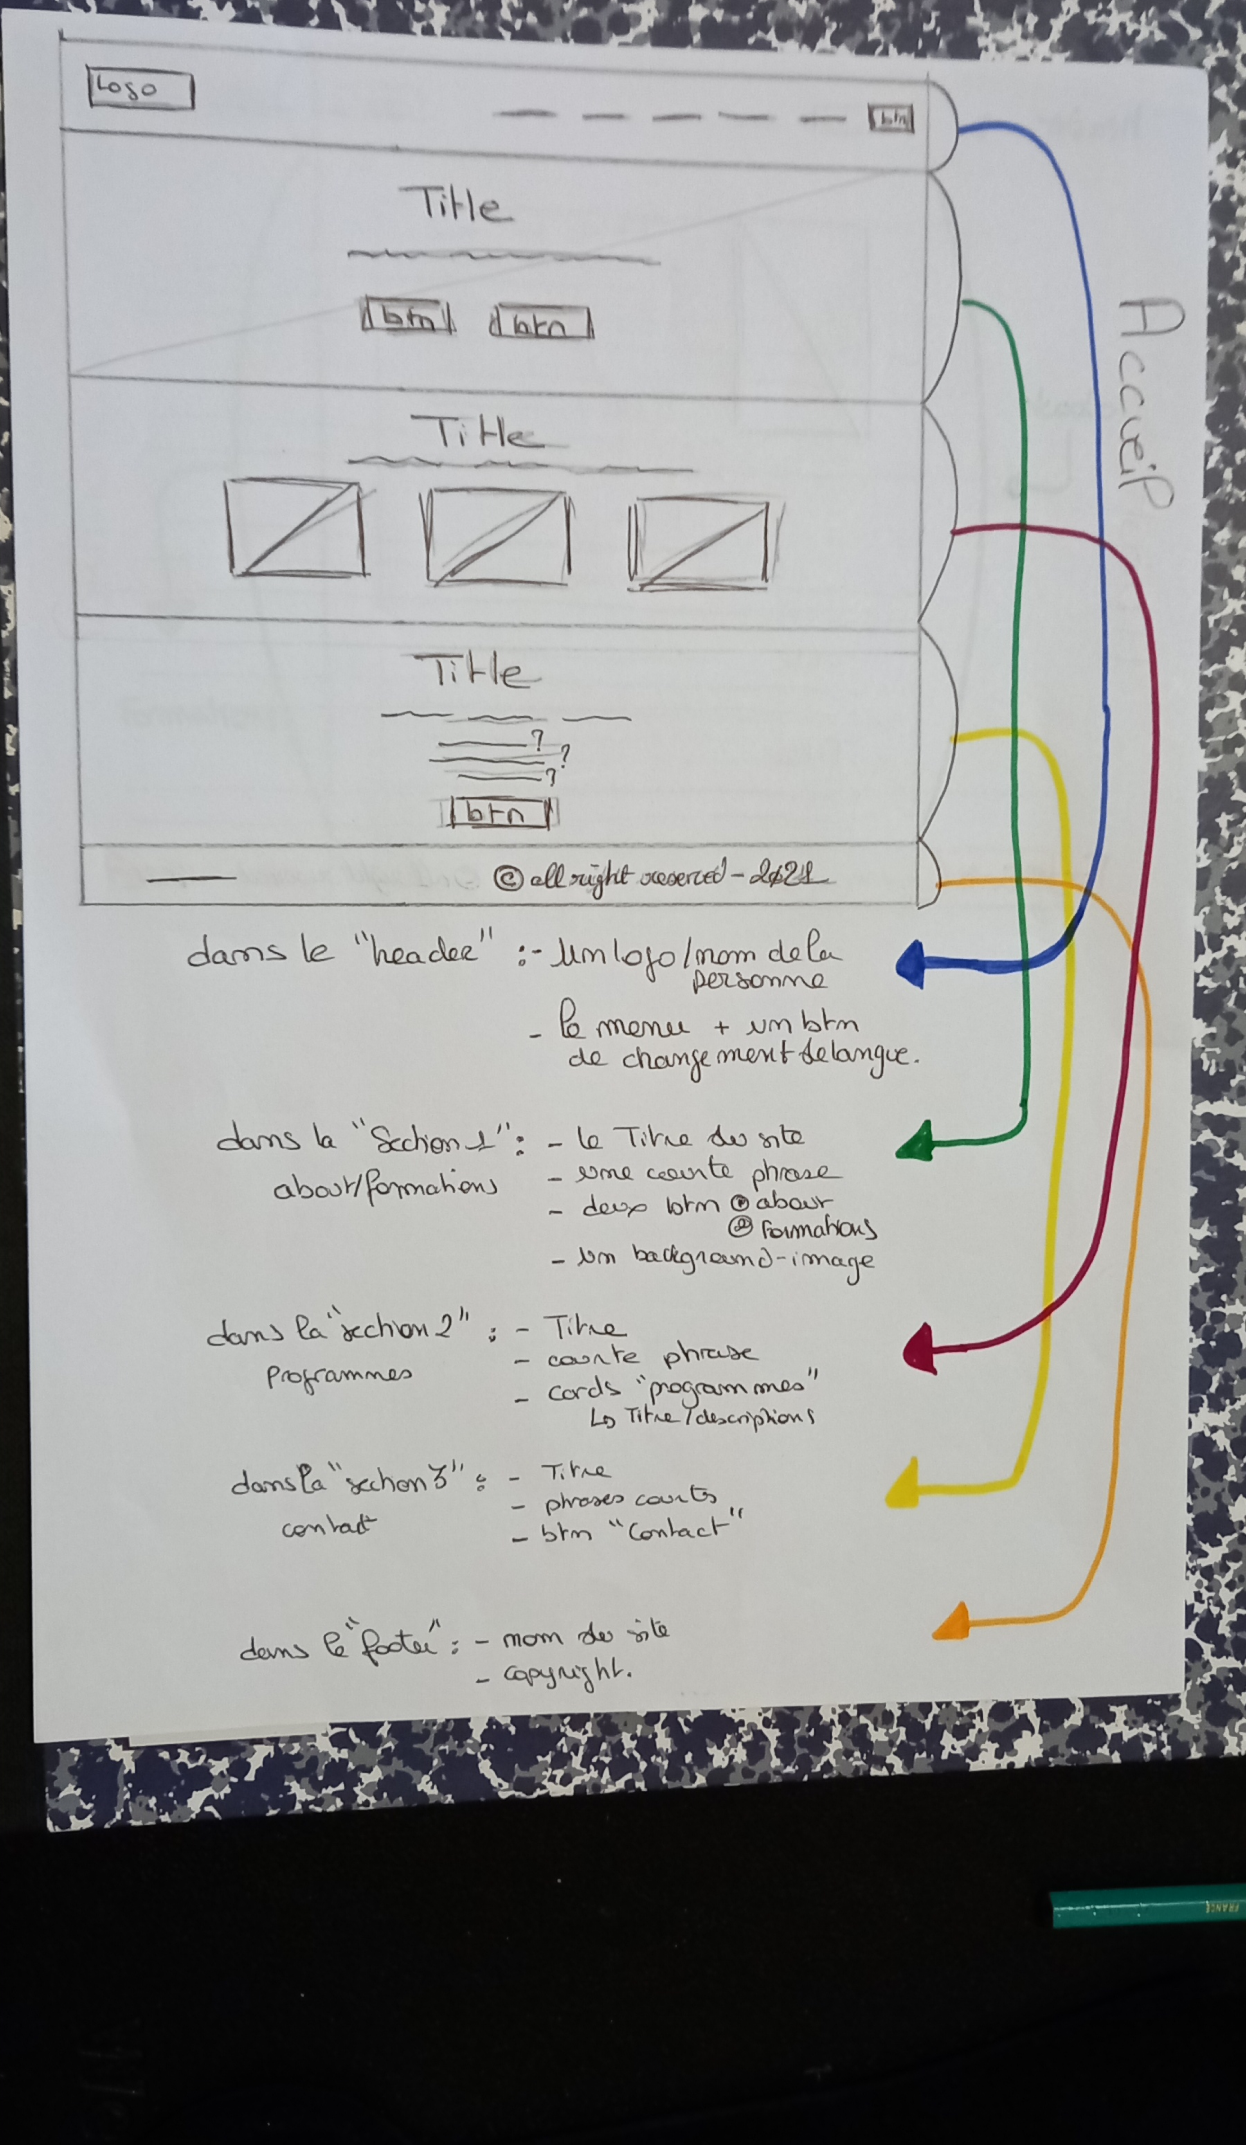 Logo
btn
Title
btn btn
Accueil
Title
Title
?
?
?
btn
© all right reserved - 2021
dans le "header" : - Un logo/nom de la
personne
- le menu + un btn
de changement de langue.
dans la "Section 1" : - le Titre du site
about/formations - une courte phrase
- deux btn ① about
② Formations
- un background-image
dans la "section 2" : - Titre
Programmes - courte phrase
- cards "programmes"
↳ Titre/descriptions
dans la "section 3" : - Titre
contact - phrases courts
- btn "Contact"
dans le "footer" : - nom du site
- copyright.
FRANCE